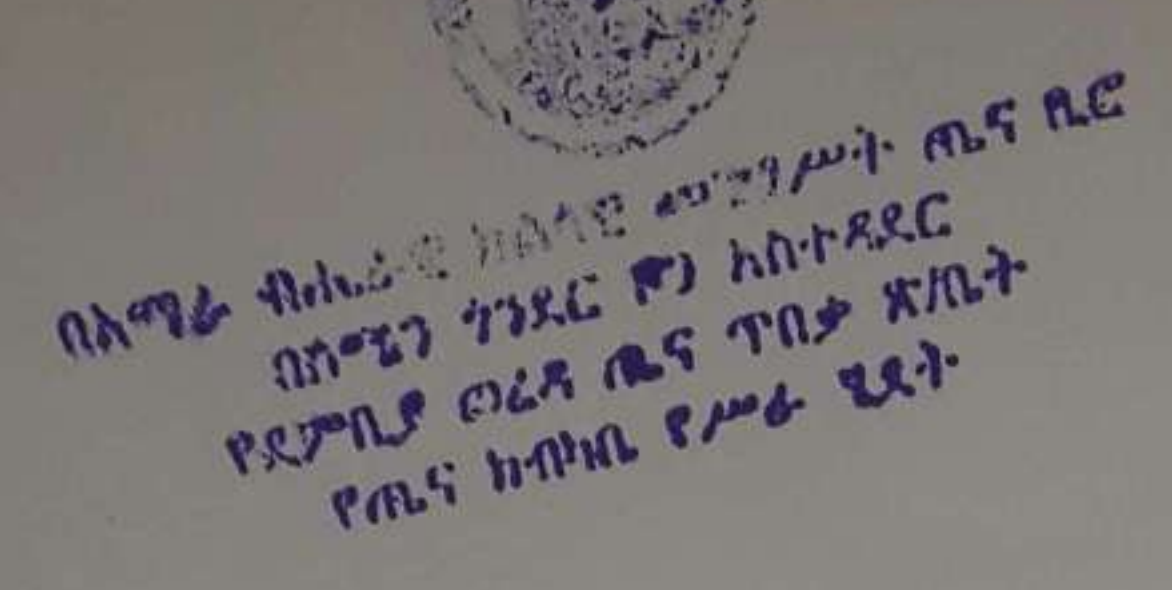 በአማራ ብሔራዊ ክልላዊ መንግሥት ጤና ቢሮ
በሰሜን ጎንደር ዞን አስተዳደር
የደምቢያ ወረዳ ጤና ጥበቃ ጽ/ቤት
የጤና ክብካቤ የሥራ ሂደት